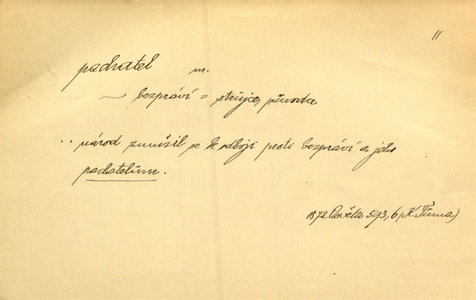 11
pachatel m.
~ bezpráví = strůjce, původce
.. národ zmužil se k odboji proti bezpráví a jeho
pachatelům.
1872 Osvěta 593, b (K. Tůma)